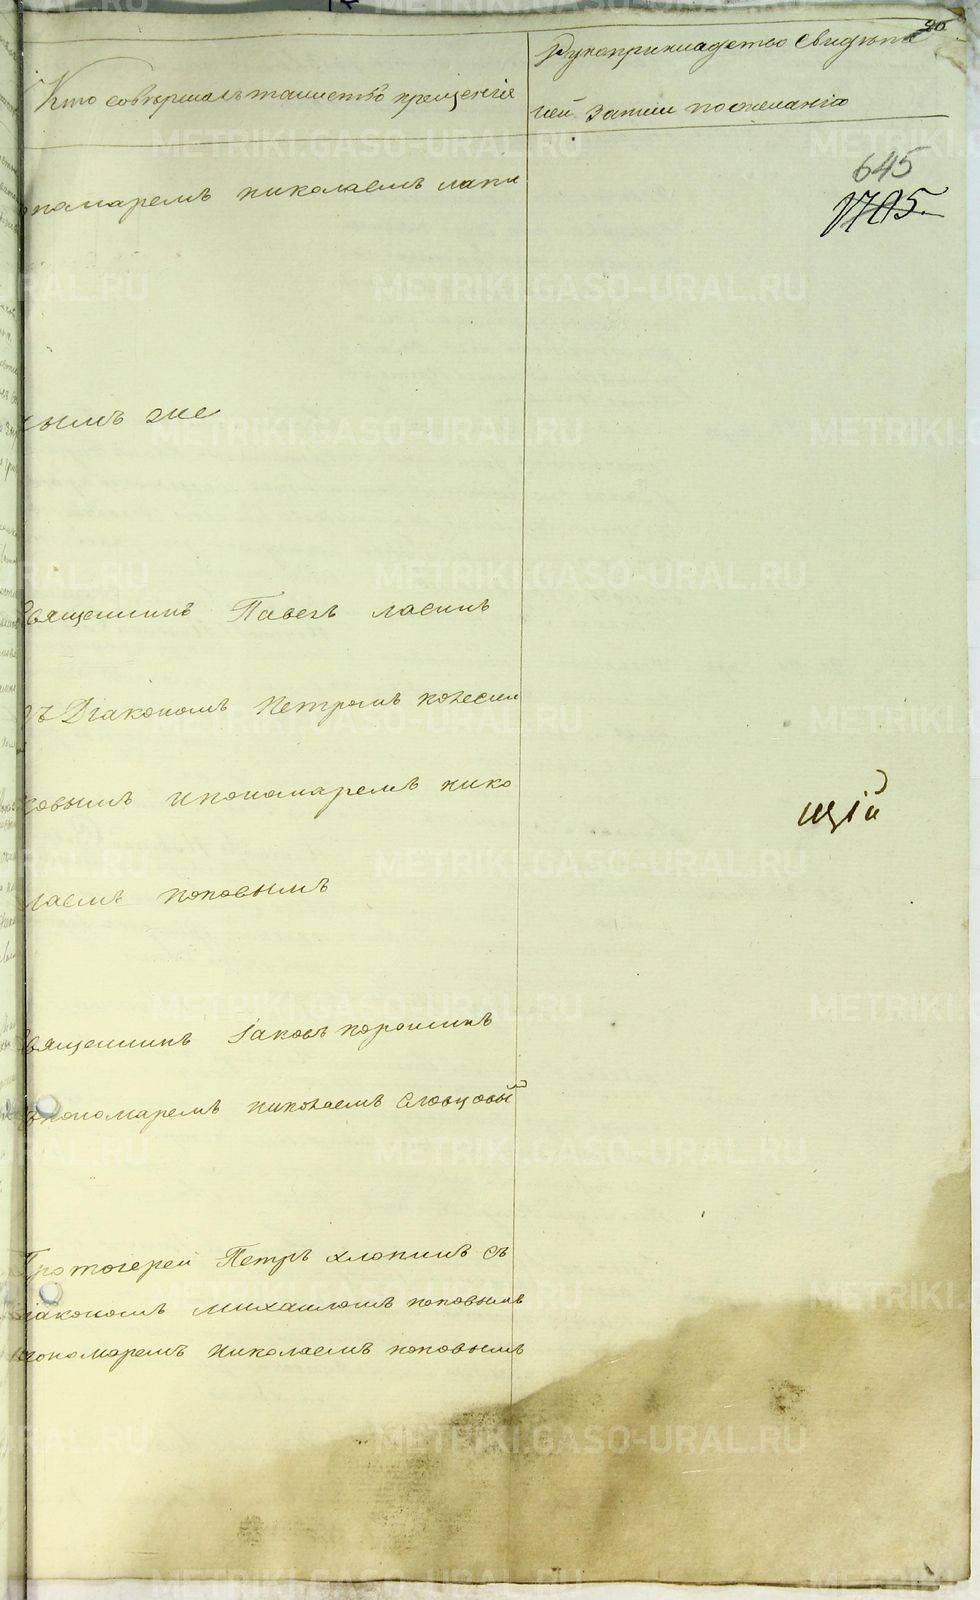 20
Кто совершалъ таинство крещенія
Рукоприкладство свидѣте
лей записи по желанію
645
1705.
пономаремъ николаемъ лапи
нымъ же
Священникъ Павелъ ласинъ
съ Діакономъ Петромъ колесни
ковымъ и пономаремъ нико
лаемъ поповымъ
Священникъ Іаковъ порошинъ
съ пономаремъ николаемъ Словцовым
щій
Протоіерей Петръ хлопинъ съ
діакономъ михаиломъ поповымъ
пономаремъ николаемъ поповымъ
METRIKI.GASO-URAL.RU